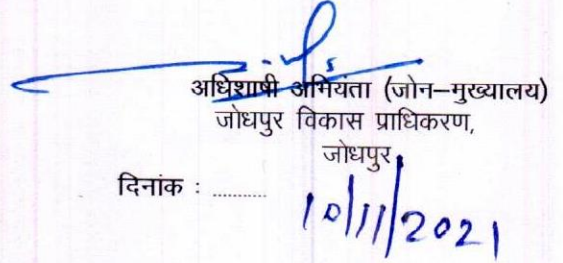 अधिशाषी अभियंता (जोन–मुख्यालय)
जोधपुर विकास प्राधिकरण,
जोधपुर
दिनांक : ..........
10/11/2021